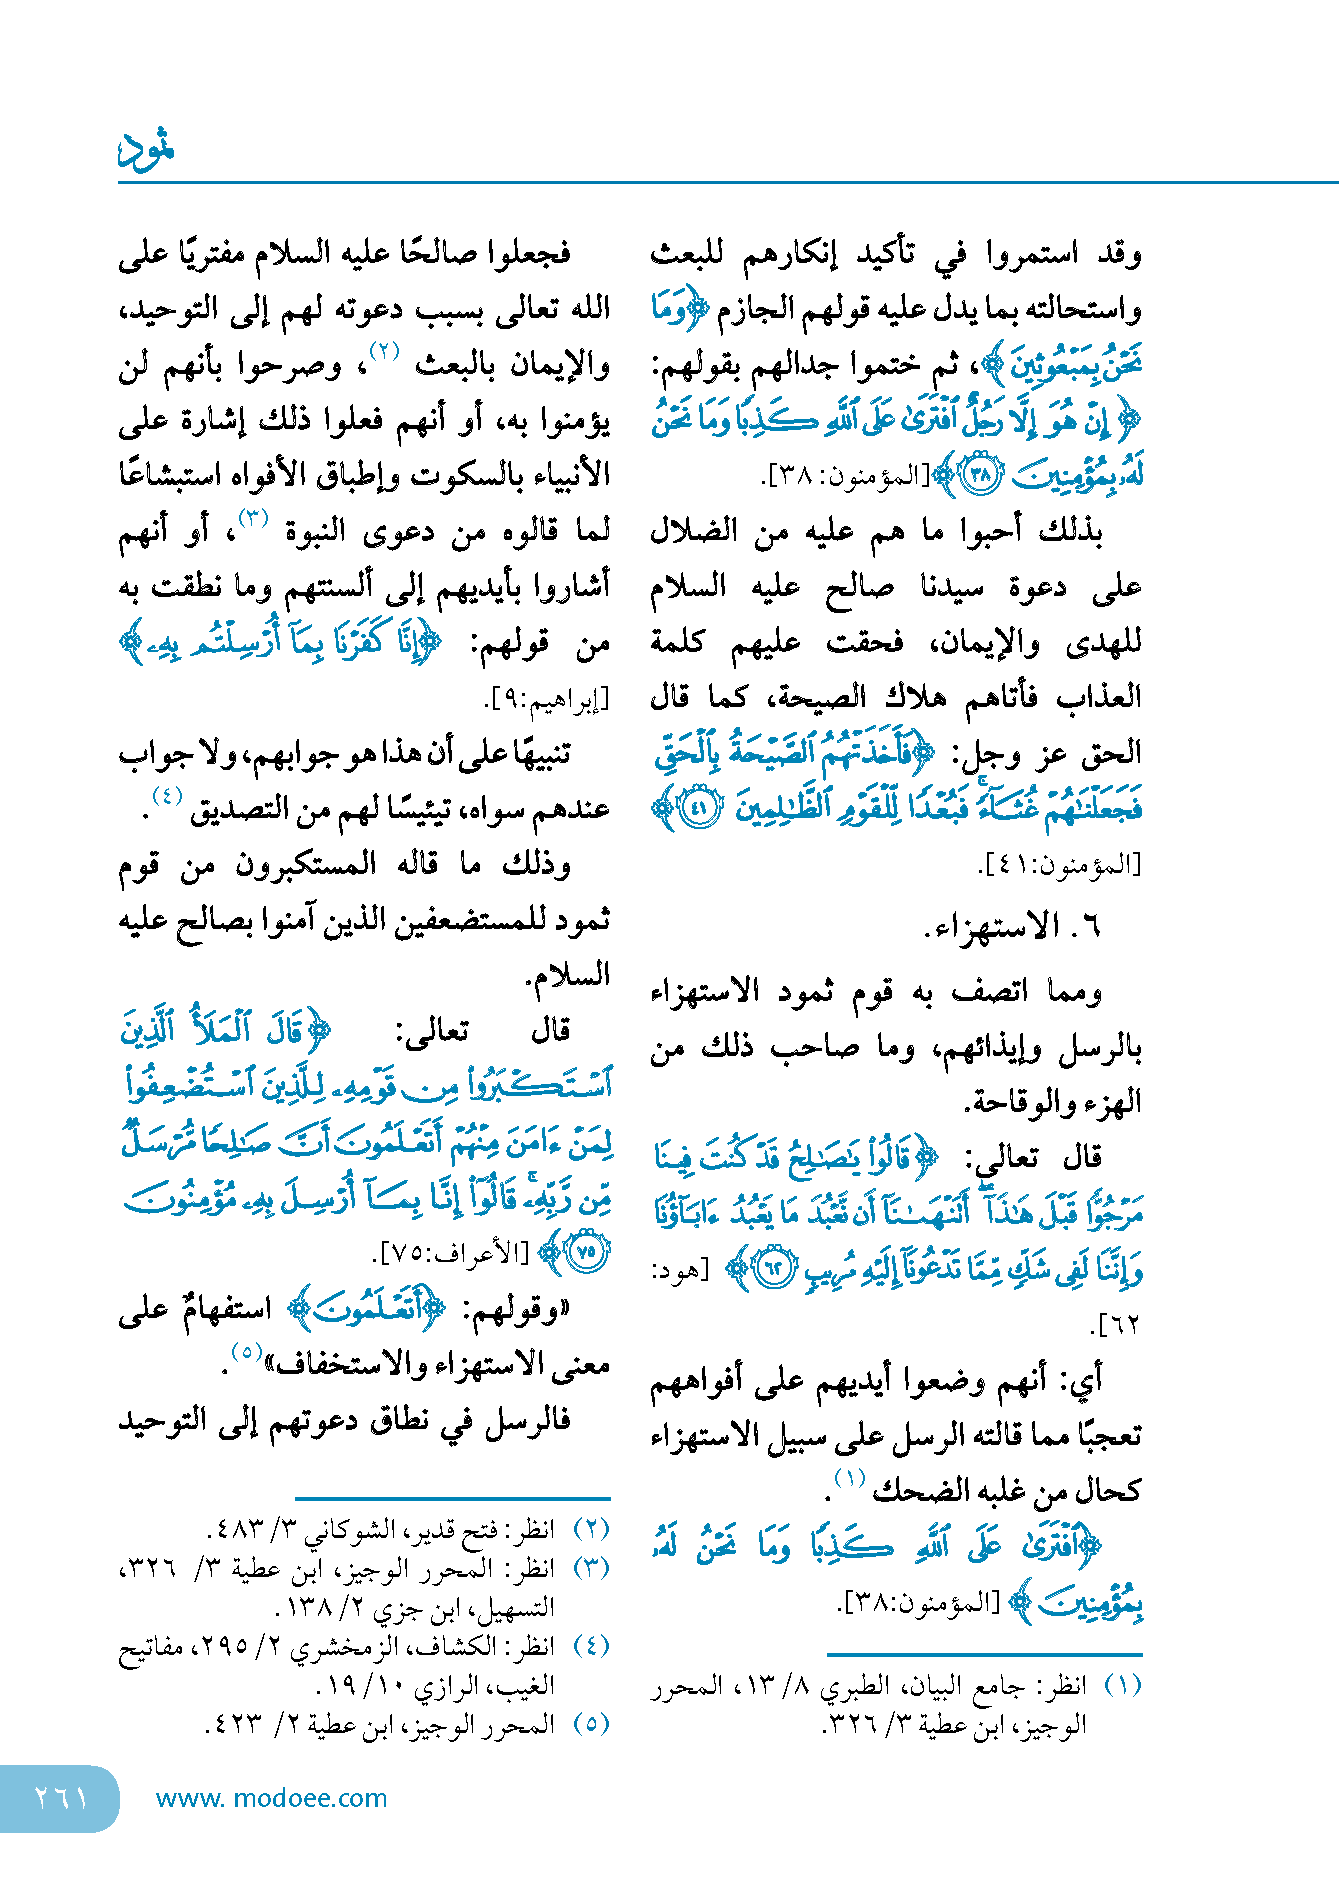 ثمود
وقد استمروا في تأكيد إنكارهم للبعث
واستحالته بما يدل عليه قولهم الجازم ﴿وَمَا
نَحْنُ بِمَبْعُوثِينَ﴾، ثم ختموا جدالهم بقولهم:
﴿إِنْ هُوَ إِلَّا رَجُلٌ ٱفْتَرَىٰ عَلَى ٱللَّهِ كَذِبًا وَمَا نَحْنُ
لَهُۥ بِمُؤْمِنِينَ ٣٨﴾ [المؤمنون: ٣٨].
بذلك أحبوا ما هم عليه من الضلال
على دعوة سيدنا صالح عليه السلام
للهدى والإيمان، فحقت عليهم كلمة
العذاب فأتاهم هلاك الصيحة، كما قال
الحق عز وجل: ﴿فَأَخَذَتْهُمُ ٱلصَّيْحَةُ بِٱلْحَقِّ
فَجَعَلْنَٰهُمْ غُثَآءً ۚ فَبُعْدًا لِّلْقَوْمِ ٱلظَّٰلِمِينَ ٤١﴾
[المؤمنون:٤١].
٦. الاستهزاء.
ومما اتصف به قوم ثمود الاستهزاء
بالرسل وإيذائهم، وما صاحب ذلك من
الهزء والوقاحة.
قال تعالى: ﴿قَالُوا۟ يَٰصَٰلِحُ قَدْ كُنتَ فِينَا
مَرْجُوًّا قَبْلَ هَٰذَآ ۖ أَتَنْهَىٰنَآ أَن نَّعْبُدَ مَا يَعْبُدُ ءَابَآؤُنَا
وَإِنَّنَا لَفِى شَكٍّ مِّمَّا تَدْعُونَآ إِلَيْهِ مُرِيبٍ ٦٢﴾ [هود:
٦٢].
أي: أنهم وضعوا أيديهم على أفواههم
تعجبًا مما قالته الرسل على سبيل الاستهزاء
كحال من غلبه الضحك(١).
﴿ٱفْتَرَىٰ عَلَى ٱللَّهِ كَذِبًا وَمَا نَحْنُ لَهُۥ
بِمُؤْمِنِينَ﴾ [المؤمنون:٣٨].
(١) انظر: جامع البيان، الطبري ٨/ ١٣، المحرر
الوجيز، ابن عطية ٣/ ٣٢٦.
فجعلوا صالحًا عليه السلام مفتريًا على
الله تعالى بسبب دعوته لهم إلى التوحيد،
والإيمان بالبعث(٢)، وصرحوا بأنهم لن
يؤمنوا به، أو أنهم فعلوا ذلك إشارة على
الأنبياء بالسكوت وإطباق الأفواه استبشاعًا
لما قالوه من دعوى النبوة(٣)، أو أنهم
أشاروا بأيديهم إلى ألسنتهم وما نطقت به
من قولهم: ﴿إِنَّا كَفَرْنَا بِمَآ أُرْسِلْتُم بِهِۦ﴾
[إبراهيم:٩].
تنبيهًا على أن هذا هو جوابهم، ولا جواب
عندهم سواه، تيئيسًا لهم من التصديق(٤).
وذلك ما قاله المستكبرون من قوم
ثمود للمستضعفين الذين آمنوا بصالح عليه
السلام.
قال تعالى: ﴿قَالَ ٱلْمَلَأُ ٱلَّذِينَ
ٱسْتَكْبَرُوا۟ مِن قَوْمِهِۦ لِلَّذِينَ ٱسْتُضْعِفُوا۟
لِمَنْ ءَامَنَ مِنْهُمْ أَتَعْلَمُونَ أَنَّ صَٰلِحًا مُّرْسَلٌ
مِّن رَّبِّهِۦ ۚ قَالُوٓا۟ إِنَّا بِمَآ أُرْسِلَ بِهِۦ مُؤْمِنُونَ
٧٥﴾ [الأعراف:٧٥].
«وقولهم: ﴿أَتَعْلَمُونَ﴾ استفهامٌ على
معنى الاستهزاء والاستخفاف»(٥).
فالرسل في نطاق دعوتهم إلى التوحيد
(٢) انظر: فتح قدير، الشوكاني ٣/ ٤٨٣.
(٣) انظر: المحرر الوجيز، ابن عطية ٣/ ٣٢٦،
التسهيل، ابن جزي ٢/ ١٣٨.
(٤) انظر: الكشاف، الزمخشري ٢/ ٢٩٥، مفاتيح
الغيب، الرازي ١٠/ ١٩.
(٥) المحرر الوجيز، ابن عطية ٢/ ٤٢٣.
٢٦١
www. modoee.com